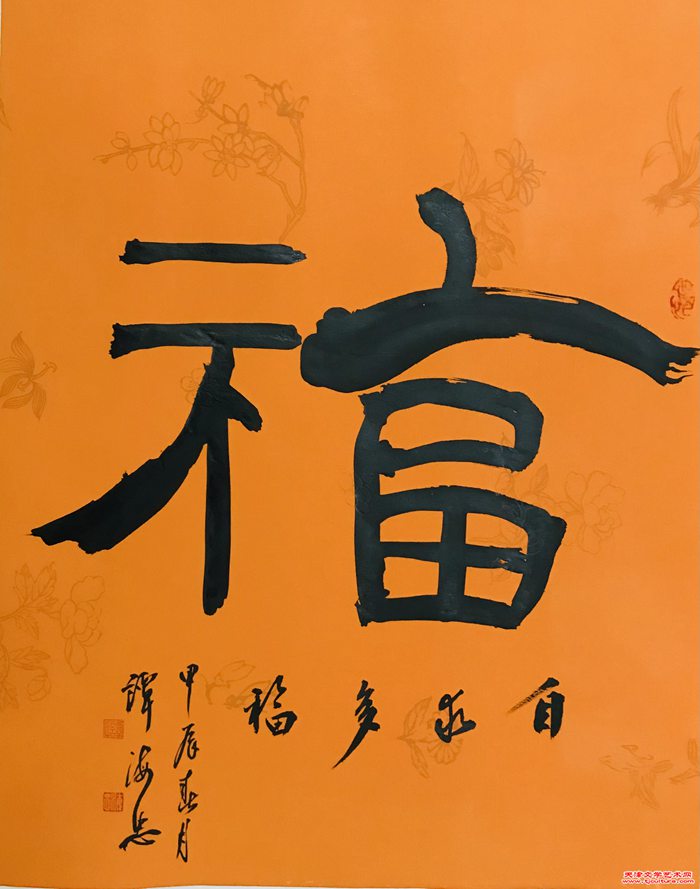 福
自求多福
甲辰春月
譚海忠
天津文学艺术网
www.tjculture.com